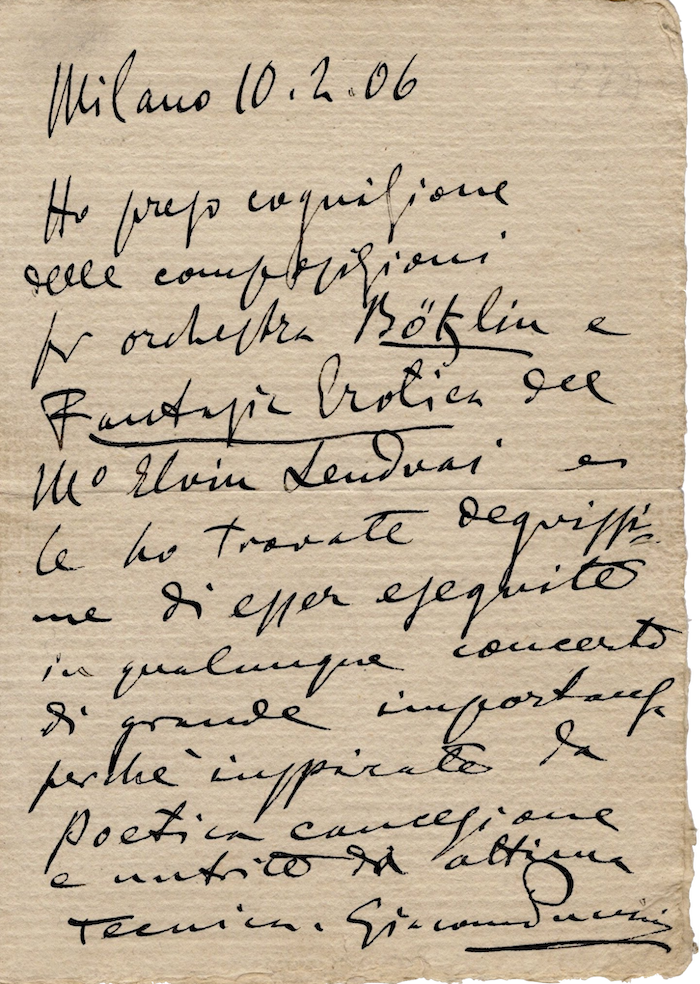 Milano 10.2.06
Ho preso cognizione
delle composizioni
per orchestra Böklin e
Fantasia Erotica del
Mo Elvin Lendvai e
le ho trovate degnissi-
me di esser eseguite
in qualunque concerto
di grande importanza
perchè inspirate da
poetica concezione
e nutrite da ottima
tecnica. Giacomo Puccini